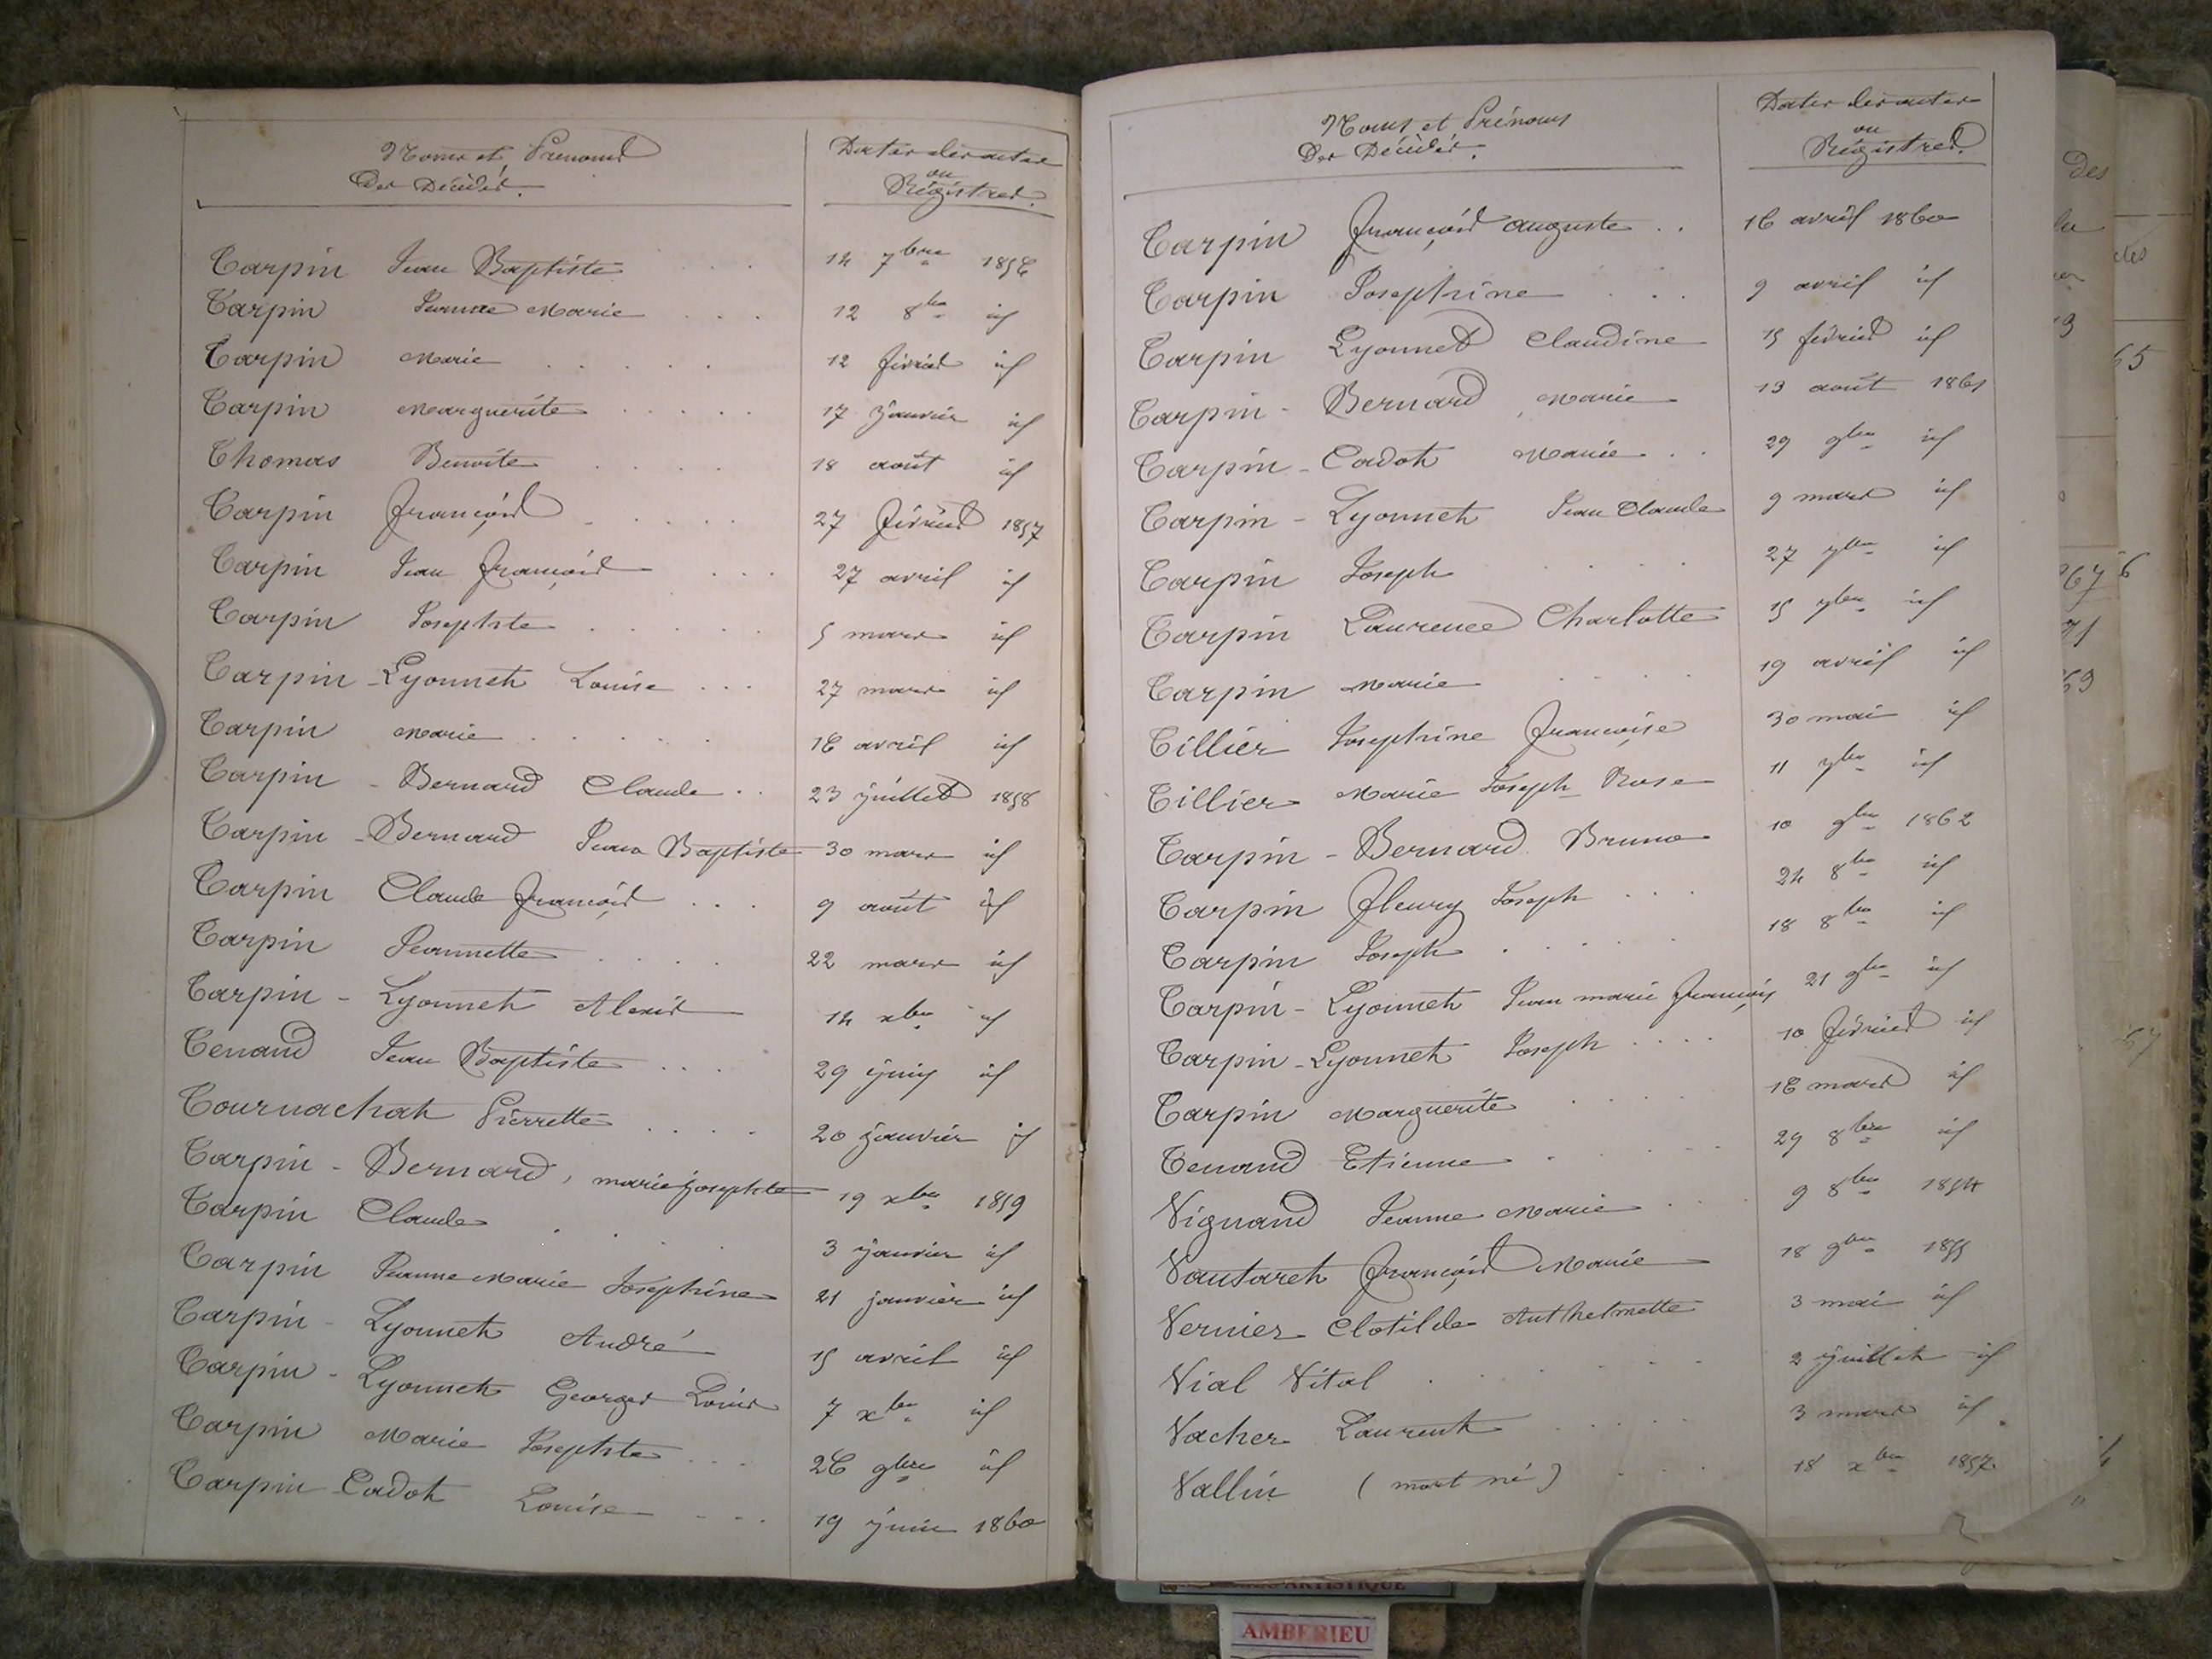 Noms et Prénoms
Des Décédés.
Dates des actes
ou
Régistres.
Tarpin Jean Baptiste . . . 14 7bre 1856
Tarpin Jeanne Marie . . . 12 8bre id
Tarpin Marie . . . . . 12 février id
Tarpin Marguerite . . . . . 17 Janvier id
Thomas Benoite . . . . 18 août id
Tarpin François . . . . . 27 février 1857
Tarpin Jean François . . . 27 avril id
Tarpin Josephte . . . . . 5 mars id
Tarpin-Lyonnet Louise . . . 27 mars id
Tarpin Marie . . . . . 16 avril id
Tarpin - Bernard Claude . . 23 juillet 1858
Tarpin - Bernard Jean Baptiste 30 mars id
Tarpin Claude François . . . 9 août id
Tarpin Jeannette . . . . 22 mars id
Tarpin - Lyonnet Alexis 14 xbre id
Tenand Jean Baptiste . . . 29 juin id
Tournachat Pierrette . . . . 20 janvier id
Tarpin - Bernard, marie josephte 19 xbre 1859
Tarpin Claude . . . . 3 janvier id
Tarpin Jeanne Marie Josephine 21 janvier id
Tarpin - Lyonnet André 15 avril id
Tarpin - Lyonnet Georges Louis 7 xbre id
Tarpin Marie Josephte . . . 26 9bre id
Tarpin-Cadot Louise . . . 19 juin 1860
Noms et Prénoms
Des Décédés.
Dates des actes
ou
Régistres.
Tarpin François auguste . . 16 avril 1860
Tarpin Josephine . . . 9 avril id
Tarpin Lyonnet Claudine 15 février id
Tarpin - Bernard Marie 13 août 1861
Tarpin - Cadot Marie . . 29 9bre id
Tarpin - Lyonnet Jean Claude 9 mars id
Tarpin Joseph . . . . 27 7bre id
Tarpin Laurence Charlotte 15 7bre id
Tarpin Marie . . . . 19 avril id
Tillier Josephine Françoise 30 mai id
Tillier Marie Joseph Rose 11 7bre id
Tarpin - Bernard Bruno 10 9bre 1862
Tarpin Fleury Joseph . . . 24 8bre id
Tarpin Joseph . . . . . 18 8bre id
Tarpin - Lyonnet Jean marie François 21 9bre id
Tarpin - Lyonnet Joseph . . . . 10 février id
Tarpin Marguerite . . . . 16 mars id
Tenand Etienne . . . . . 29 8bre id
Vignand Jeanne Marie . . . 9 8bre 1854
Vautaret François Marie 18 9bre 1855
Vernier Clotilde Anthelmette 3 mai id
Vial Vital . . . . . 2 juillet id
Vacher Laurent . . . . 3 mars id
Vallin (mort né) . . . 18 xbre 1857
AMBERIEU